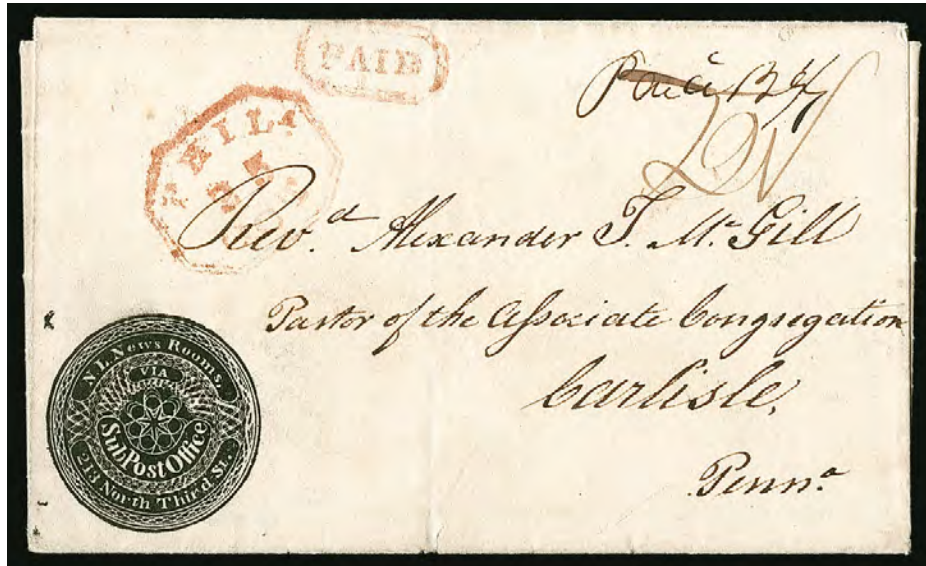 PAID
PHILA
25
Paid 12½
Revd. Alexander T. McGill
Pastor of the Associate Congregation
Carlisle,
Penna.
N.L. News Rooms,
VIA
Sub Post Office
213 North Third St.